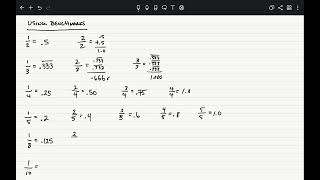 USING BENCHMARKS
1/2 = .5 2/2 = .5 +.5 1.0
1/3 = .333 2/3 = .333 +.333 .666 3/3 = .333 .333 .333 1.0
1/4 = .25 2/4 = .50 3/4 = .75 4/4 = 1.0
1/5 = .2 2/5 = .4 3/5 = .6 4/5 = .8 5/5 = 1.0
1/8 = .125 2
1/10 =